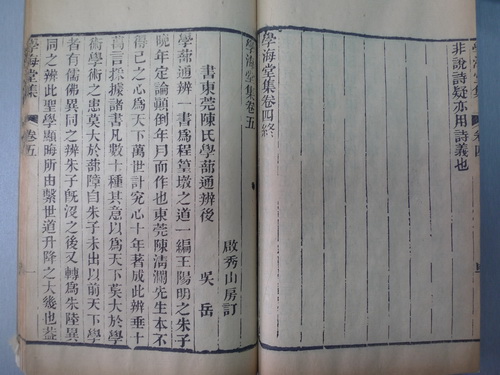 學海堂集 卷四
非說詩疑亦用詩義也
學海堂集卷四終
學海堂集卷五
啟秀山房訂
書東莞陳氏學蔀通辨後 吳岳
學蔀通辨一書為程篁墩之道一編王陽明之朱子
晚年定論顛倒年月而作也東莞陳清瀾先生本不
得已之心為天下萬世計究心十年著成此辨垂十
萬言採據諸書凡數十種其意以為天下莫大於學
術學術之患莫大於蔀障自朱子未出以前天下學
者有儒佛異同之辨朱子既沒之後又轉為朱陸異
同之辨此聖學顯晦所由繫世道升降之大幾也蓋
學海堂集 卷五